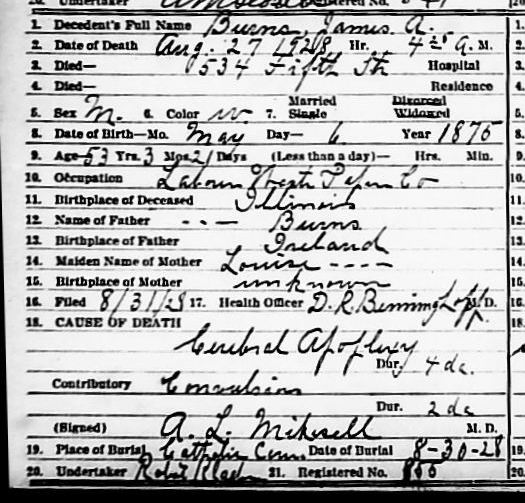 1. Decedent's Full Name Burns, James A.
2. Date of Death Aug. 27 1928 Hr. 4 25 A. M.
3. Died— 534 Fifth St Hospital
4. Died— Residence
5. Sex M. 6. Color W. 7. Married Single Divorced Widowed
8. Date of Birth—Mo. May Day— 6 Year 1875
9. Age 53 Yrs. 3 Mos. 21 Days (Less than a day)— Hrs. Min.
10. Occupation Labour Paper Co
11. Birthplace of Deceased Illinois
12. Name of Father - - - Burns
13. Birthplace of Father Ireland
14. Maiden Name of Mother Louise - - - -
15. Birthplace of Mother unknown
16. Filed 8/31/28 17. Health Officer D. R. M. D.
18. CAUSE OF DEATH
Cerebral Apoplexy
Dur. 4 da.
Contributory Convulsions
Dur. 2 da
(Signed) A. L. Mikesell M. D.
19. Place of Burial Catholic Cem. Date of Burial 8-30-28
20. Undertaker 21. Registered No. 855